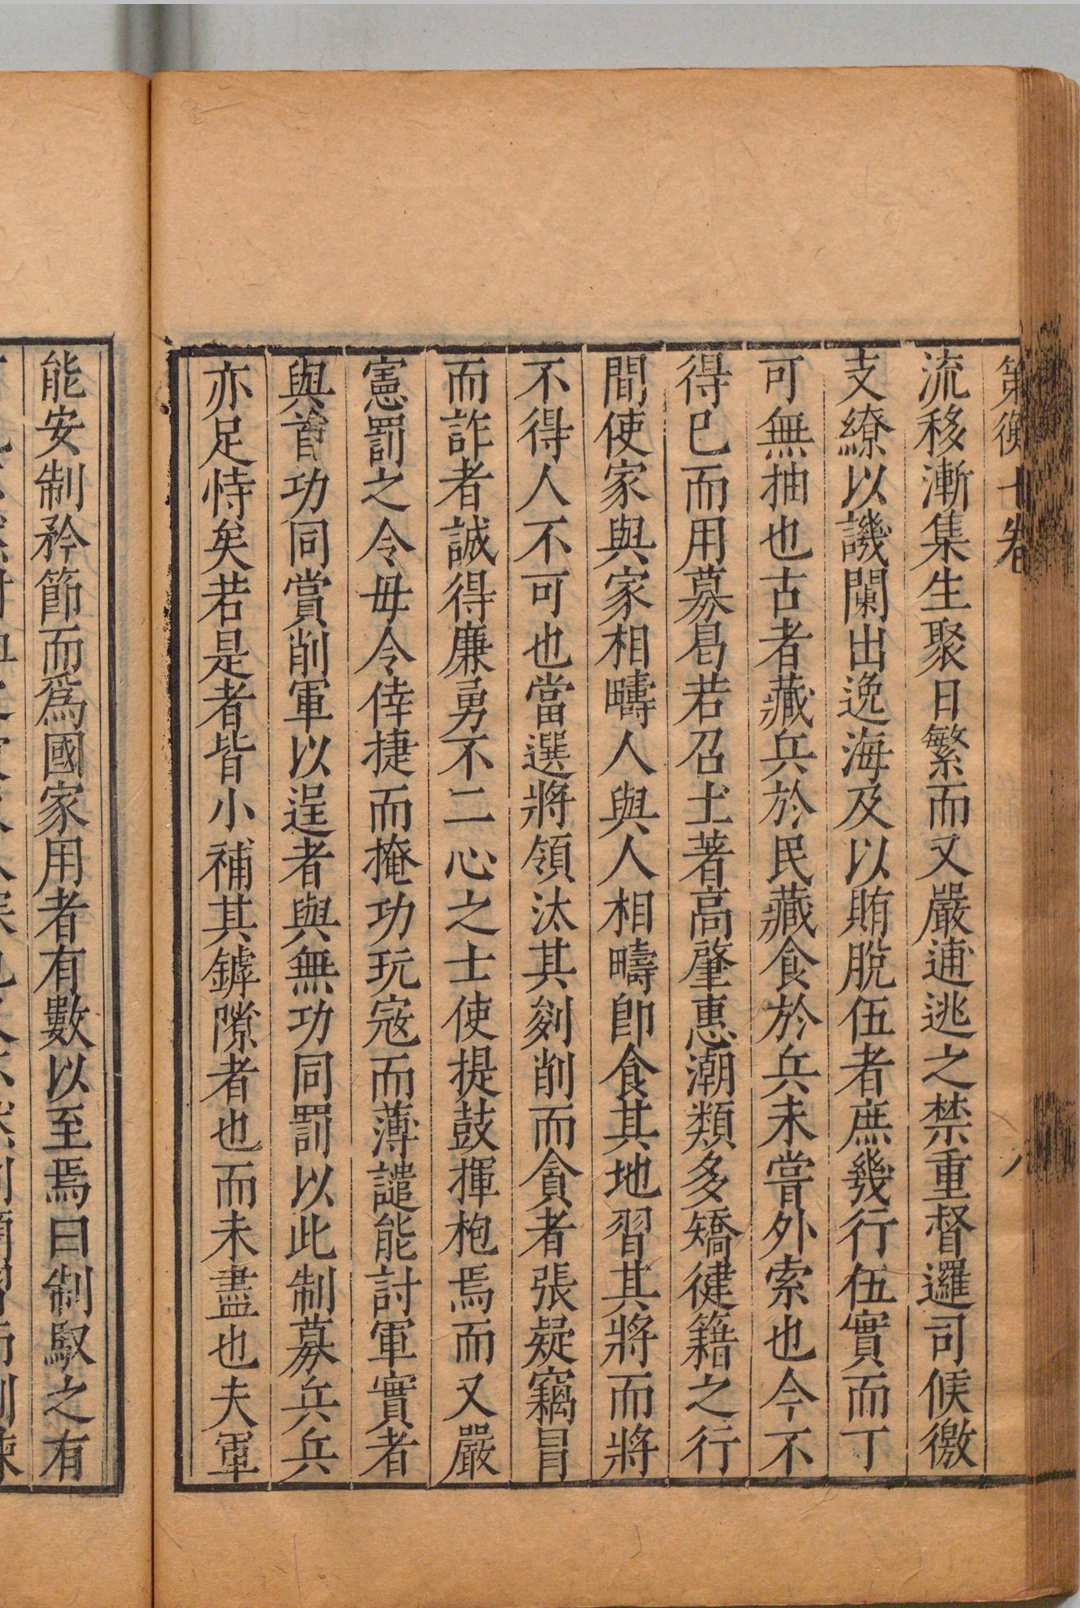 策衡十卷
八
流移漸集生聚日繁而又嚴逋逃之禁重督邏司候徼
支繚以譏闌出逸海及以賄脫伍者庶幾行伍實而丁
可無抽也古者藏兵於民藏食於兵未嘗外索也今不
得已而用募曷若召土著高肇惠潮類多矯健籍之行
間使家與家相疇人與人相疇即食其地習其將而將
不得人不可也當選將領汰其剡削而貪者張疑竊冒
而詐者誠得廉勇不二心之士使提鼓揮枹焉而又嚴
憲罰之令毋令倖捷而掩功玩寇而薄譴能討軍實者
與首功同賞削軍以逞者與無功同罰以此制募兵兵
亦足恃矣若是者皆小補其罅隙者也而未盡也夫軍
能安制矜節而爲國家用者有數以至焉曰制馭之有